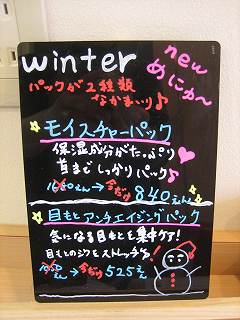 winter
new
めにゅ〜
パックが2種類
なかま入り♪
モイスチャーパック
保湿成分がたっぷり
首までしっかりパック♪
1680えん→今だけ840えん
目もとアンチエイジングパック
冬になる目もとを集中ケア!
目もとのシワをストレッチ♪
1050えん→今だけ525えん